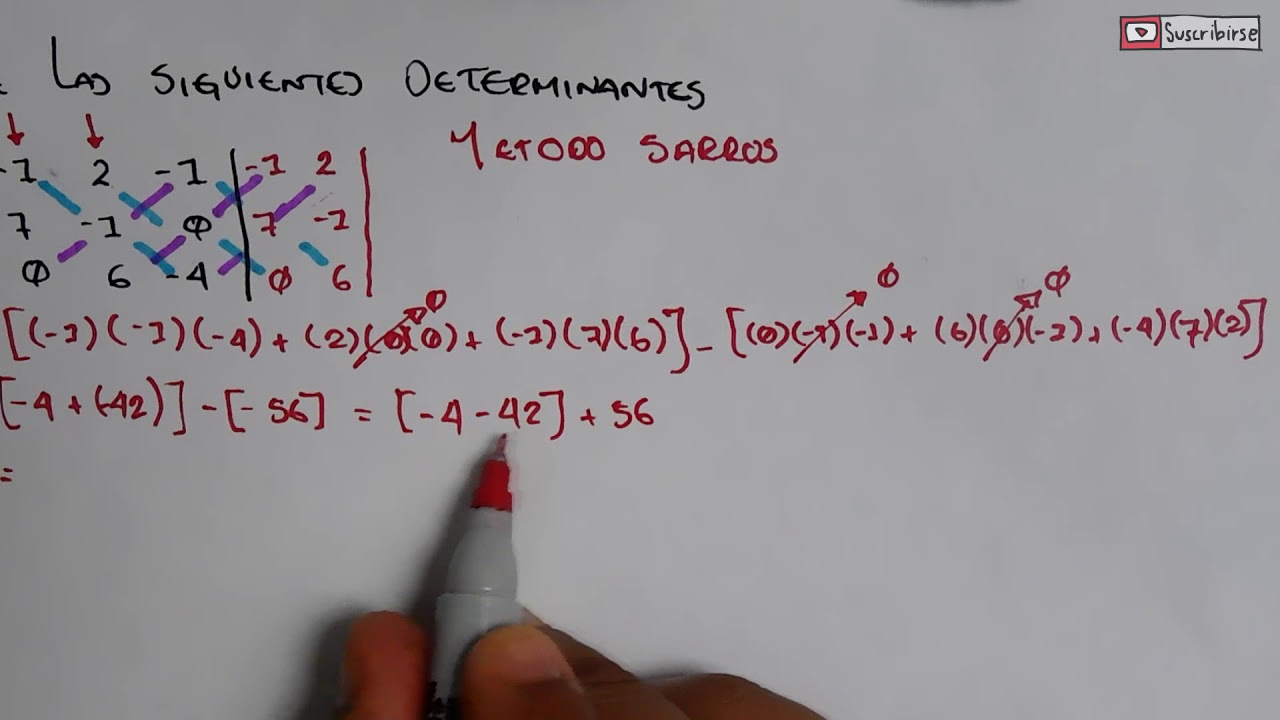 Suscribirse
LAS SIGUIENTES DETERMINANTES
METODO SARROS
-1 2 -1 | -1 2 |
7 -1 0 | 7 -1 |
0 6 -4 | 0 6 |
0 0 0
[(-1)(-1)(-4) + (2)(0)(0) + (-1)(7)(6)] - [(0)(-1)(-1) + (6)(0)(-1) + (-4)(7)(2)]
[-4 + (-42)] - [-56] = [-4 - 42] + 56
=